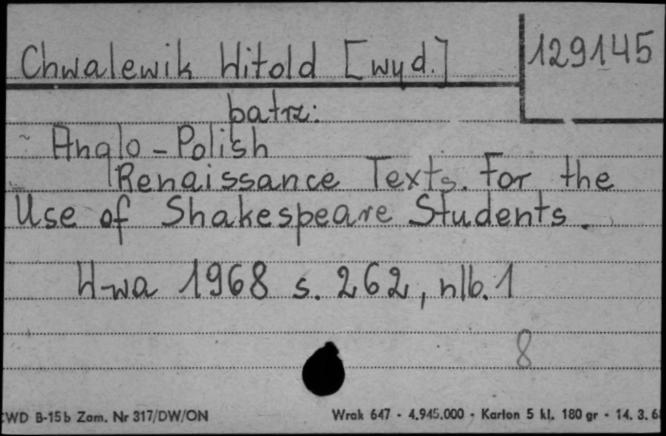 Chwalewik Witold [wyd.]
129145
patrz:
Anglo-Polish
Renaissance Texts. For the
Use of Shakespeare Students.
W-wa 1968 s. 262, nlb. 1
8
CWD B-15b Zam. Nr 317/DW/ON
Wrak 647 - 4.945.000 - Karton 5 kl. 180 gr - 14. 3. 6